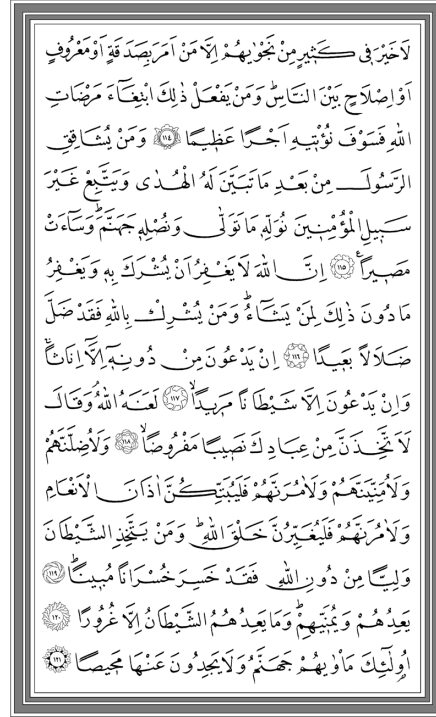 لَا خَيْرَ فٖى كَثٖيرٍ مِنْ نَجْوٰيهُمْ اِلَّا مَنْ اَمَرَ بِصَدَقَةٍ اَوْ مَعْرُوفٍ
اَوْ اِصْلَاحٍ بَيْنَ النَّاسِؕ وَمَنْ يَفْعَلْ ذٰلِكَ ابْتِغَٓاءَ مَرْضَاتِ
اللّٰهِ فَسَوْفَ نُؤْتٖيهِ اَجْرًا عَظٖيمًا ﴿١١٤﴾ وَمَنْ يُشَاقِقِ
الرَّسُولَ مِنْ بَعْدِ مَا تَبَيَّنَ لَهُ الْهُدٰى وَيَتَّبِعْ غَيْرَ
سَبٖيلِ الْمُؤْمِنٖينَ نُوَلِّهٖ مَا تَوَلّٰى وَنُصْلِهٖ جَهَنَّمَؕ وَسَٓاءَتْ
مَصٖيرًا ﴿١١٥﴾ اِنَّ اللّٰهَ لَا يَغْفِرُ اَنْ يُشْرَكَ بِهٖ وَيَغْفِرُ
مَا دُونَ ذٰلِكَ لِمَنْ يَشَٓاءُؕ وَمَنْ يُشْرِكْ بِاللّٰهِ فَقَدْ ضَلَّ
ضَلَالًا بَعٖيدًا ﴿١١٦﴾ اِنْ يَدْعُونَ مِنْ دُونِهٖٓ اِلَّٓا اِنَاثًاۚ
وَاِنْ يَدْعُونَ اِلَّا شَيْطَانًا مَرٖيدًاۙ ﴿١١٧﴾ لَعَنَهُ اللّٰهُۘ وَقَالَ
لَاَتَّخِذَنَّ مِنْ عِبَادِكَ نَصٖيبًا مَفْرُوضًاۙ ﴿١١٨﴾ وَلَاُضِلَّنَّهُمْ
وَلَاُمَنِّيَنَّهُمْ وَلَاٰمُرَنَّهُمْ فَلَيُبَتِّكُنَّ اٰذَانَ الْاَنْعَامِ
وَلَاٰمُرَنَّهُمْ فَلَيُغَيِّرُنَّ خَلْقَ اللّٰهِؕ وَمَنْ يَتَّخِذِ الشَّيْطَانَ
وَلِيًّا مِنْ دُونِ اللّٰهِ فَقَدْ خَسِرَ خُسْرَانًا مُبٖينًاؕ ﴿١١٩﴾
يَعِدُهُمْ وَيُمَنّٖيهِمْؕ وَمَا يَعِدُهُمُ الشَّيْطَانُ اِلَّا غُرُورًا ﴿١٢٠﴾
اُولٰٓئِكَ مَاْوٰيهُمْ جَهَنَّمُؗ وَلَا يَجِدُونَ عَنْهَا مَحٖيصًا ﴿١٢١﴾